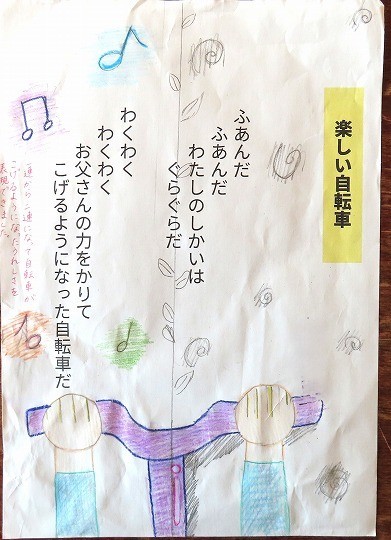 楽しい自転車
ふあんだ
ふあんだ
わたしのしかいは
ぐらぐらだ
わくわく
わくわく
お父さんの力をかりて
こげるようになった自転車だ
一連から二連になって自転車が
こげるようになったうれしさを
表現できました